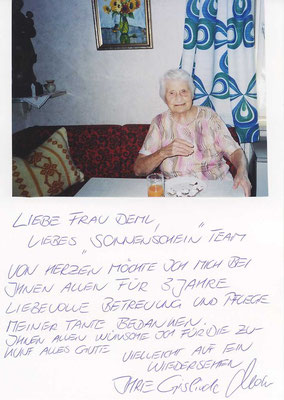 LIEBE FRAU DEML,
LIEBES "SONNENSCHEIN" TEAM
VON HERZEN MÖCHTE ICH MICH BEI
IHNEN ALLEN FÜR 3 JAHRE
LIEBEVOLLE BETREUUNG UND PFLEGE
MEINER TANTE BEDANKEN.
IHNEN ALLEN WÜNSCHE ICH FÜR DIE ZU-
KUNFT ALLES GUTE VIELLEICHT AUF EIN
WIEDERSEHEN
IHRE